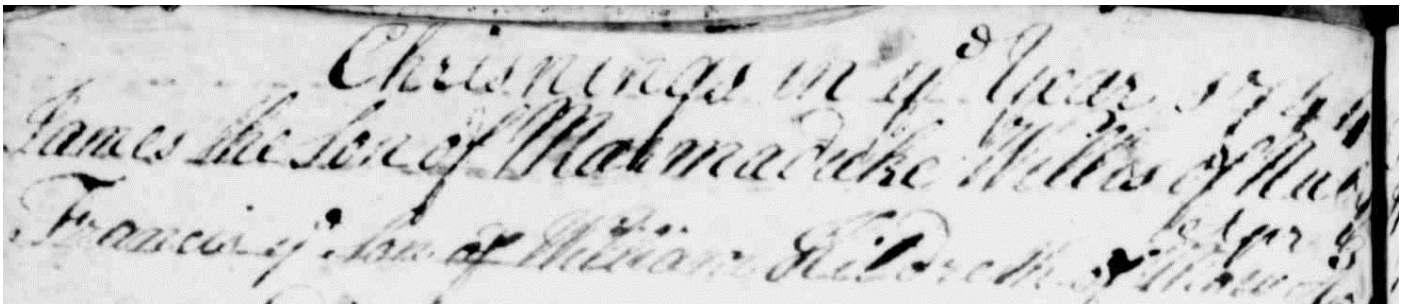 Chrisnings in ye Year 1744
James the Son of Marmaduke Willis of
Apr
Francis ye Son of William Hildreth of